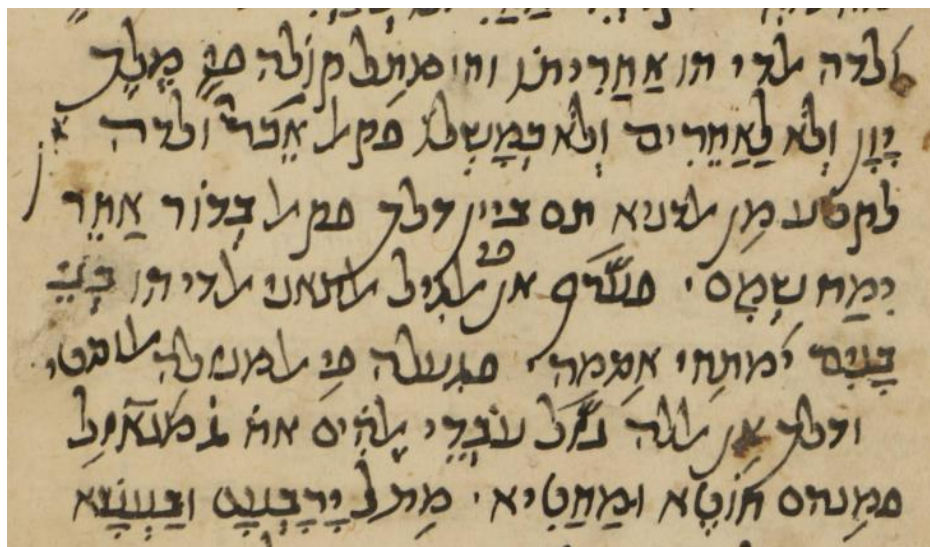 ולדה אלדי הו אַחֲרִיתוֹ והו מתל קולה פי מֶלֶך
יָוָן וְלֹא לְאַחֲרִיתוֹ וְלֹא כְמָשְׁלוֹ פקאל אכר ולדה
מן אלדניא תם ביין דלך פקאל בְּדוֹר אַחֵר
יִמַּח שְׁמָם ׳ פערף אן אלגיל אלתאני אלדי הו בְּנֵי
בָנִים ימתחי אסמה ׳ פגעלה פי אלמנזלה אלוסטי
ודלך אן אללה עֹבְדֵי אֱלֹהִים אח׳ ג׳ מנאזל
פמנהם חוֹטֵא וּמַחֲטִיא ׳ מתל יָרָבְעָם וּבַעְשָׁא